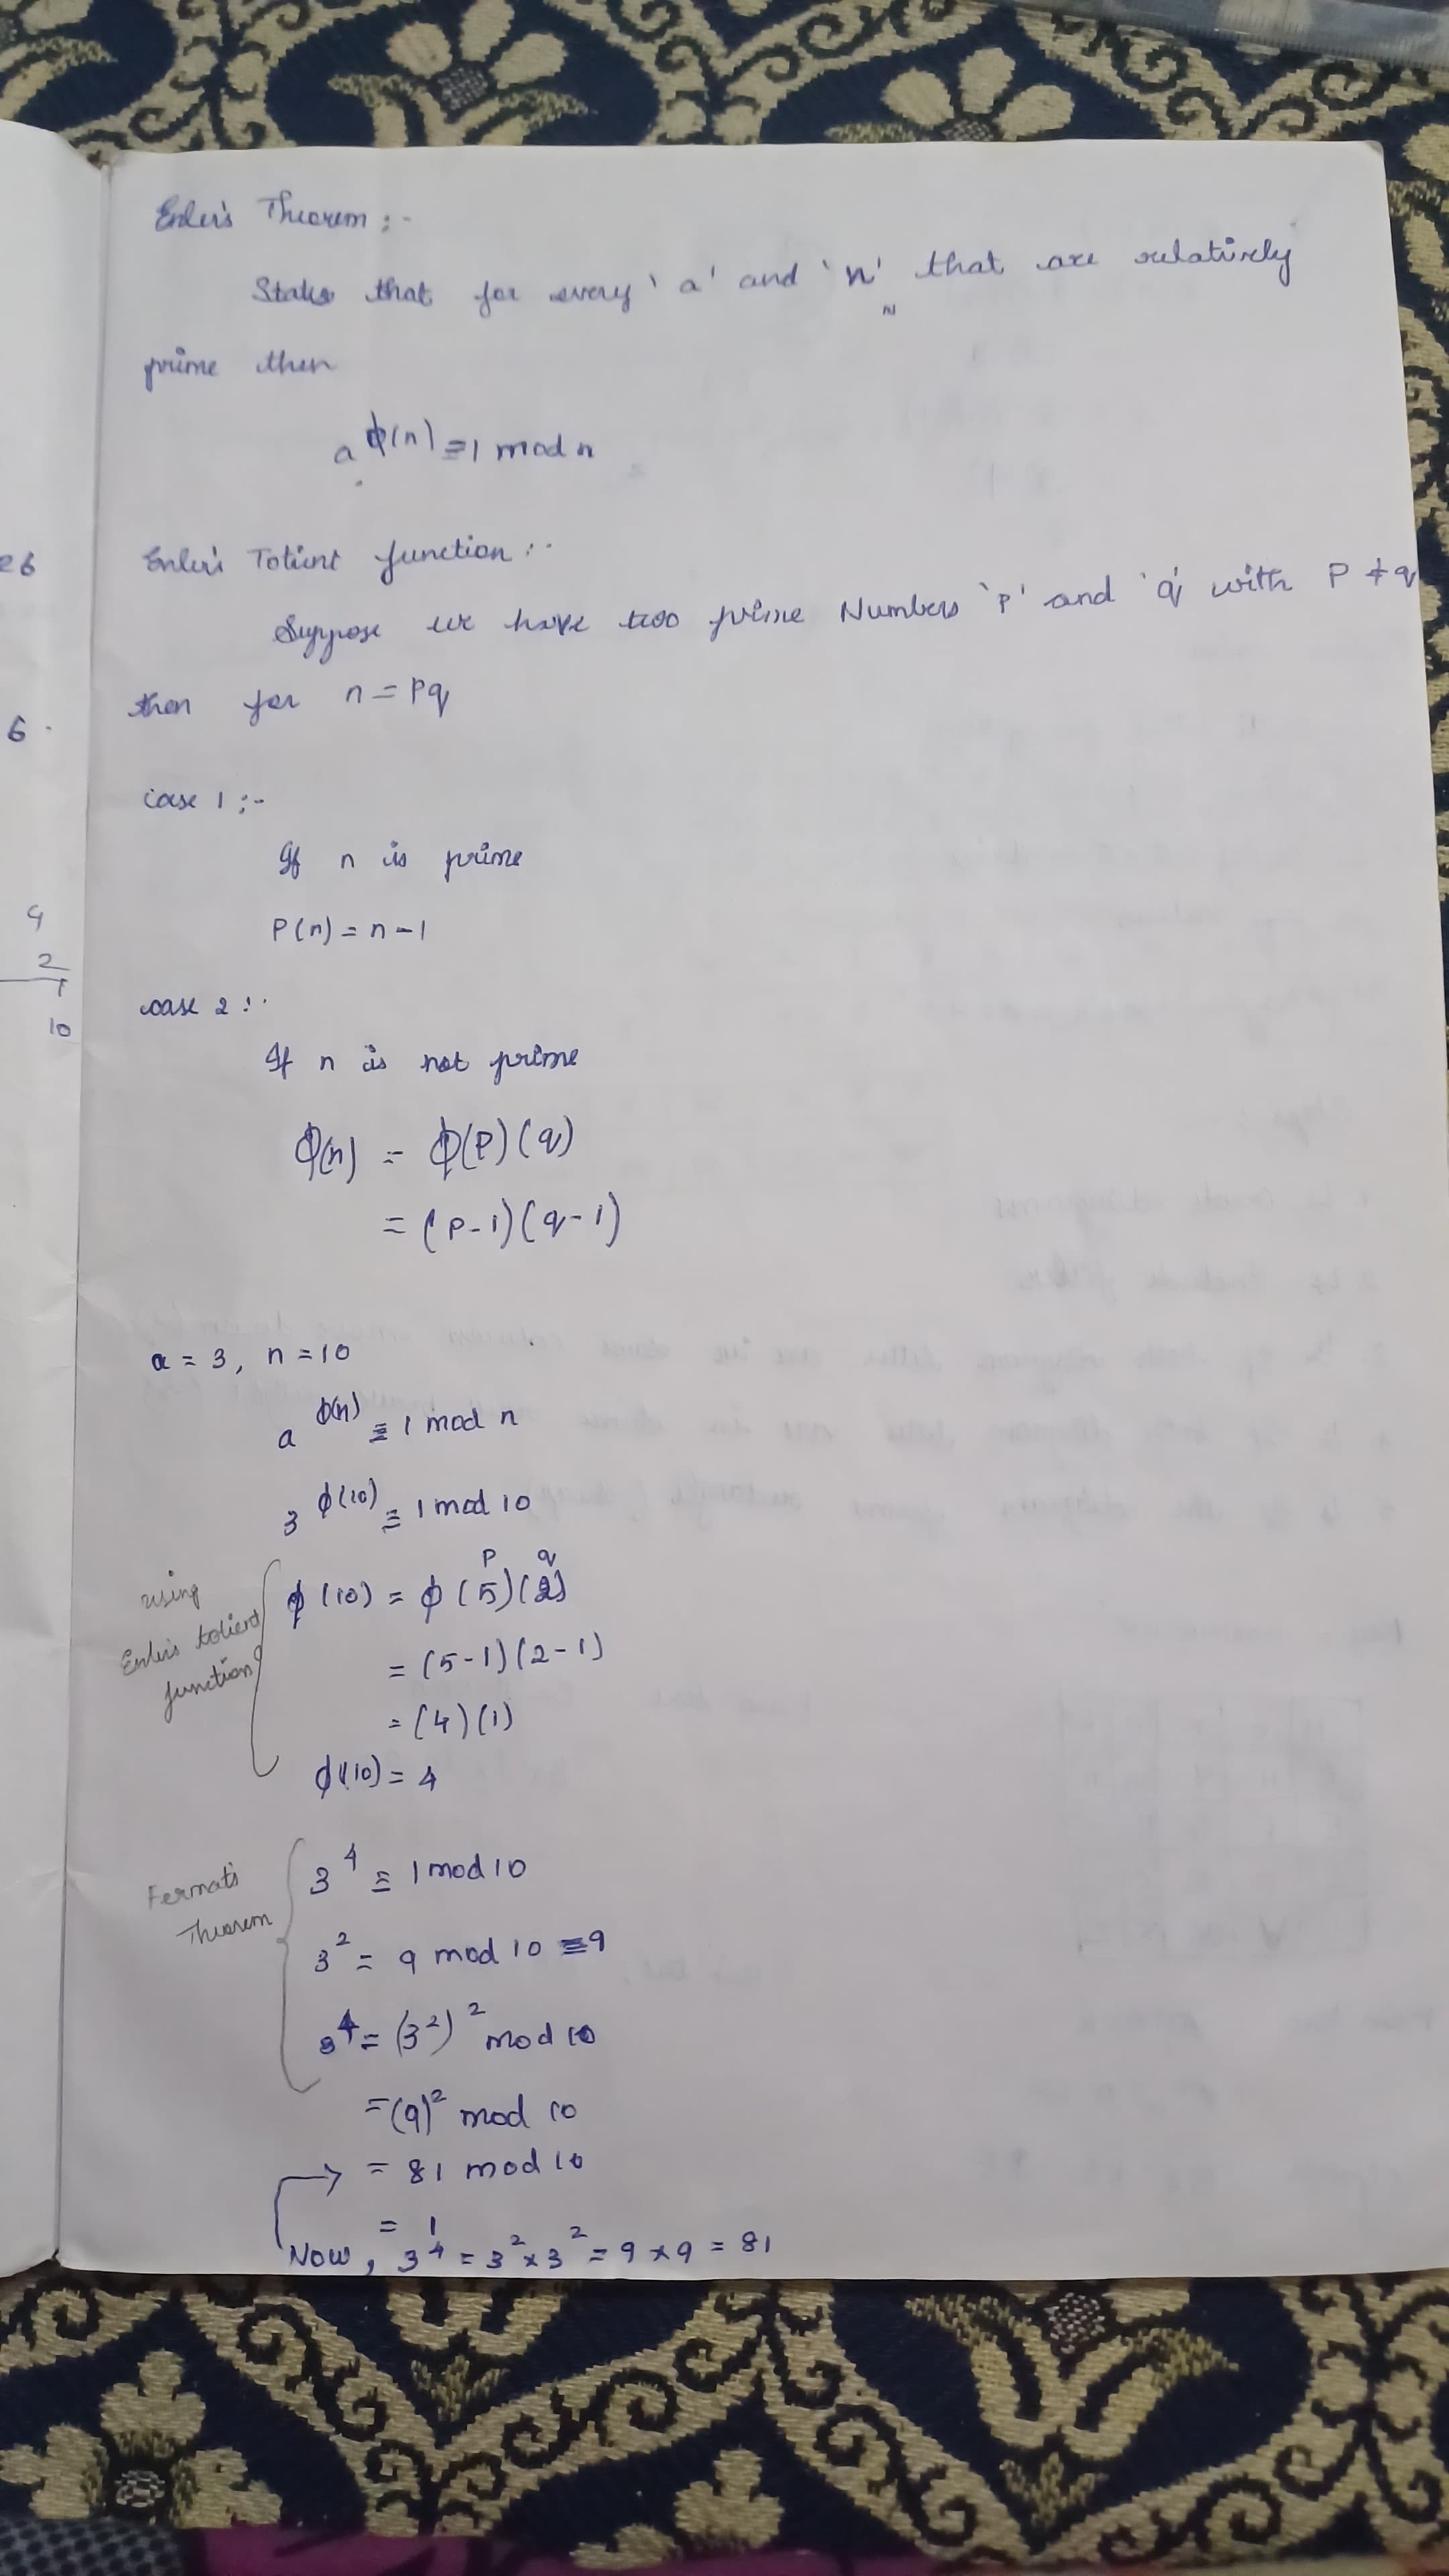 Euler's Theorem :-
States that for every 'a' and 'n' that are relatively
prime then
a^ϕ(n) ≡ 1 mod n
Euler's Totient function :-
Suppose we have two prime Numbers 'P' and 'q' with P ≠ q
then for n = Pq
case 1 :-
If n is prime
P(n) = n - 1
case 2 :-
If n is not prime
ϕ(n) = ϕ(P)(q)
= (P-1)(q-1)
a = 3, n = 10
a^ϕ(n) ≡ 1 mod n
3^ϕ(10) ≡ 1 mod 10
P q
using
Euler's totient
function
ϕ(10) = ϕ(5)(2)
= (5-1)(2-1)
= (4)(1)
ϕ(10) = 4
Fermat's
Theorem
3^4 ≡ 1 mod 10
3^2 = 9 mod 10 = 9
3^4 = (3^2)^2 mod 10
= (9)^2 mod 10
→ = 81 mod 10
= 1
Now, 3^4 = 3^2 × 3^2 = 9 × 9 = 81
26
6
4
2
1
10